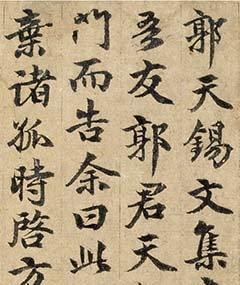 郭天錫文集
吾友郭君天
門而告余曰此
棄諸孤時啓方